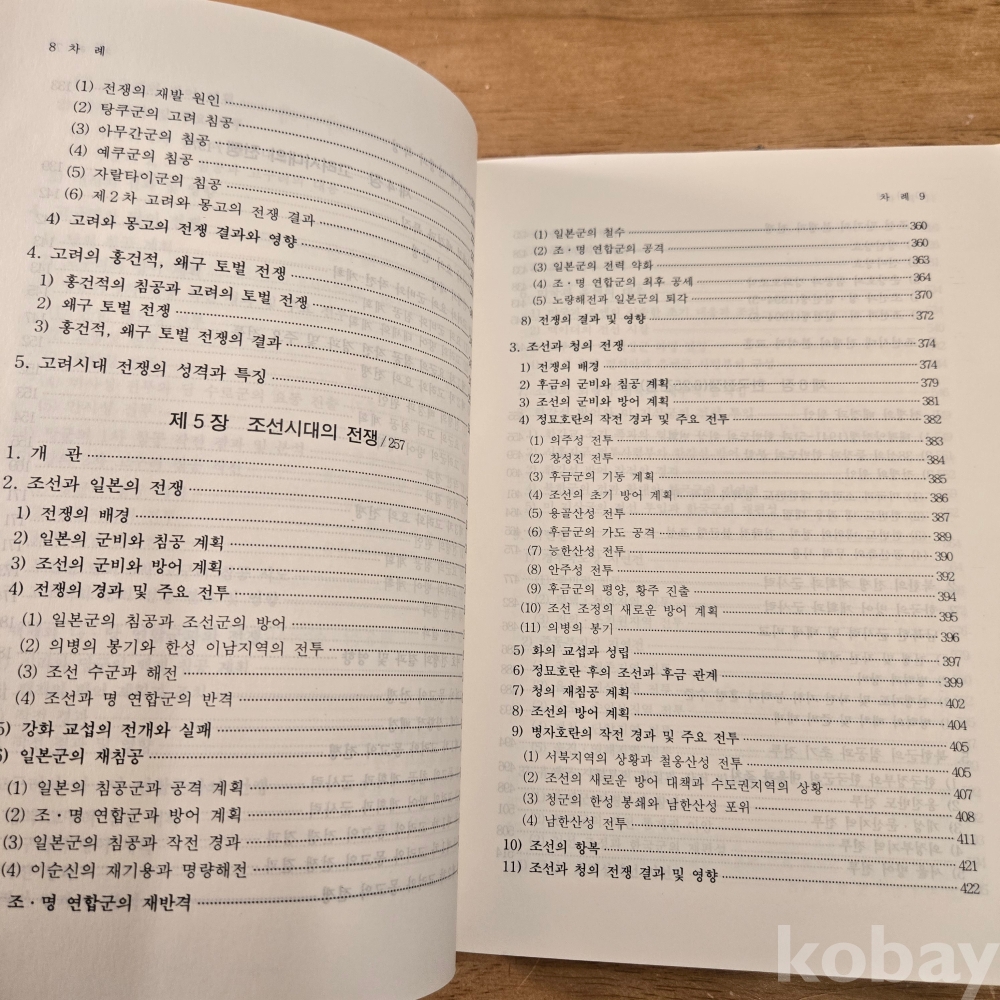 8 차 례
(1) 전쟁의 재발 원인
(2) 탕쿠군의 고려 침공
(3) 아무간군의 침공
(4) 예쿠군의 침공
(5) 자랄타이군의 침공
(6) 제2차 고려와 몽고의 전쟁 결과
4) 고려와 몽고의 전쟁 결과와 영향
4. 고려의 홍건적, 왜구 토벌 전쟁
1) 홍건적의 침공과 고려의 토벌 전쟁
2) 왜구 토벌 전쟁
3) 홍건적, 왜구 토벌 전쟁의 결과
5. 고려시대 전쟁의 성격과 특징
제5장 조선시대의 전쟁/257
1. 개 관
2. 조선과 일본의 전쟁
1) 전쟁의 배경
2) 일본의 군비와 침공 계획
3) 조선의 군비와 방어 계획
4) 전쟁의 경과 및 주요 전투
(1) 일본군의 침공과 조선군의 방어
(2) 의병의 봉기와 한성 이남지역의 전투
(3) 조선 수군과 해전
(4) 조선과 명 연합군의 반격
5) 강화 교섭의 전개와 실패
6) 일본군의 재침공
(1) 일본의 침공군과 공격 계획
(2) 조·명 연합군과 방어 계획
(3) 일본군의 침공과 작전 경과
(4) 이순신의 재기용과 명량해전
조·명 연합군의 재반격
차 례 9
(1) 일본군의 철수 360
(2) 조·명 연합군의 공격 360
(3) 일본군의 전력 약화 363
(4) 조·명 연합군의 최후 공세 364
(5) 노량해전과 일본군의 퇴각 370
8) 전쟁의 결과 및 영향 372
3. 조선과 청의 전쟁 374
1) 전쟁의 배경 374
2) 후금의 군비와 침공 계획 379
3) 조선의 군비와 방어 계획 381
4) 정묘호란의 작전 경과 및 주요 전투 382
(1) 의주성 전투 383
(2) 창성진 전투 384
(3) 후금군의 기동 계획 385
(4) 조선의 초기 방어 계획 386
(5) 용골산성 전투 387
(6) 후금군의 가도 공격 389
(7) 능한산성 전투 390
(8) 안주성 전투 392
(9) 후금군의 평양, 황주 진출 394
(10) 조선 조정의 새로운 방어 계획 395
(11) 의병의 봉기 396
5) 화의 교섭과 성립 397
6) 정묘호란 후의 조선과 후금 관계 399
7) 청의 재침공 계획 402
8) 조선의 방어 계획 404
9) 병자호란의 작전 경과 및 주요 전투 405
(1) 서북지역의 상황과 철옹산성 전투 405
(2) 조선의 새로운 방어 대책과 수도권지역의 상황 407
(3) 청군의 한성 봉쇄와 남한산성 포위 408
(4) 남한산성 전투 411
10) 조선의 항복 421
11) 조선과 청의 전쟁 결과 및 영향 422
kobay